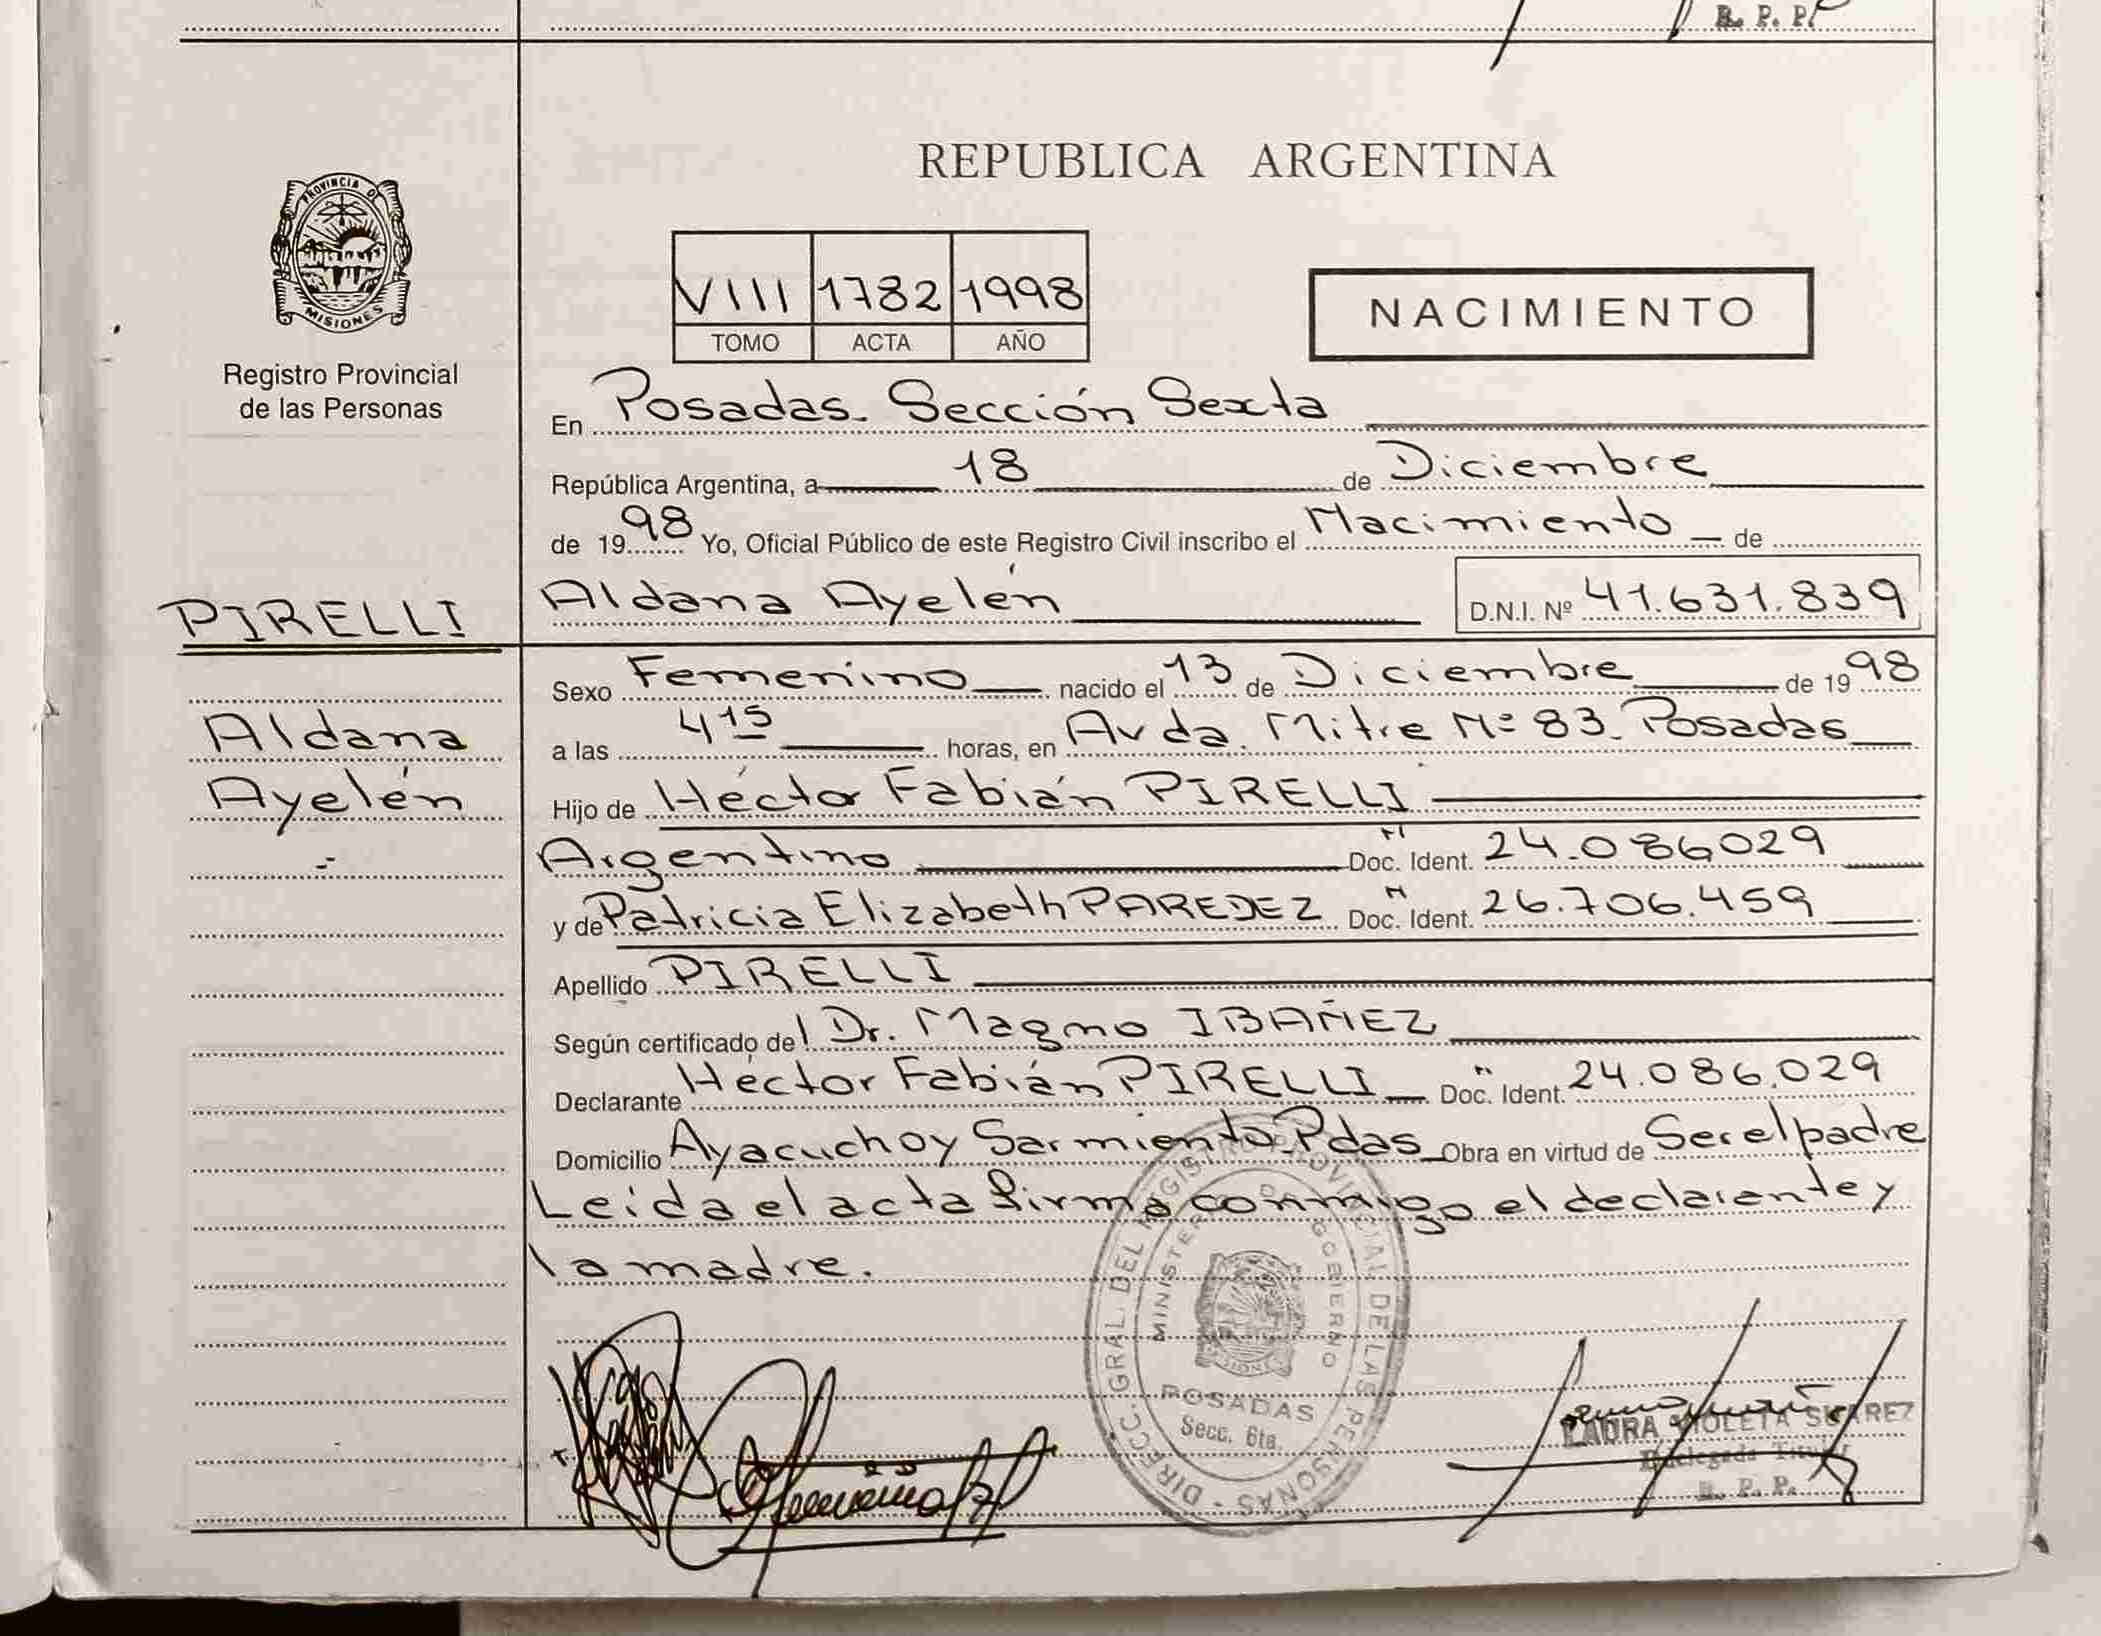 R. P. P.
PROVINCIA DE
MISIONES
Registro Provincial
de las Personas
REPUBLICA ARGENTINA
VIII 1782 1998
TOMO ACTA AÑO
NACIMIENTO
En Posadas. Sección Sexta
República Argentina, a 18 de Diciembre
de 1998 Yo, Oficial Público de este Registro Civil inscribo el Nacimiento de
PIRELLI
Aldana Ayelén D.N.I. Nº 41.631.839
Aldana
Ayelén
Sexo Femenino nacido el 13 de Diciembre de 1998
a las 4 15 horas, en Avda. Mitre Nº 83. Posadas
Hijo de Héctor Fabián PIRELLI
Argentino Doc. Ident. N 24.086029
y de Patricia Elizabeth PAREDEZ Doc. Ident. N 26.706.459
Apellido PIRELLI
Según certificado del Dr. Magno IBAÑEZ
Declarante Héctor Fabián PIRELLI Doc. Ident. 24.086.029
Domicilio Ayacucho y Sarmiento. Pdas Obra en virtud de Ser el padre
Leída el acta firma conmigo el declarante y
la madre.
DIRECC. GRAL. DEL REGISTRO PROVINCIAL DE LAS PERSONAS - MISIONES
MINISTERIO DE GOBIERNO
POSADAS
Secc. 6ta.
LAURA VIOLETA SUAREZ
Delegada Titular
R. P. P.